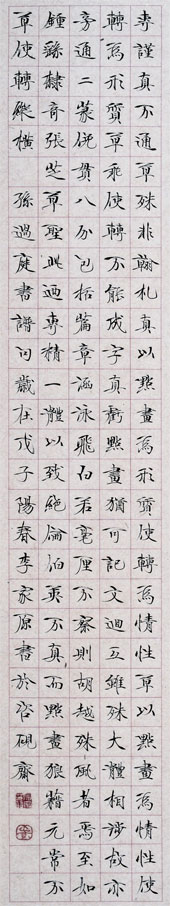 專謹真不通草殊非翰札真以點畫為形質使轉為情性草以點畫為情性使
轉為形質草乖使轉不能成字真虧點畫猶可記文迴互雖殊大體相涉故亦
旁通二篆俯貫八分包括篇章涵泳飛白若毫厘不察則胡越殊風者焉至如
鍾繇隸奇張芝草聖此迺專精一體以致絕倫伯英不真而點畫狼藉元常不
草使轉縱橫 孫過庭書譜句 歲在戊子陽春李家原書於硯齋